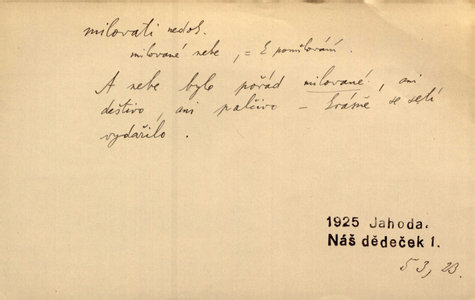 milovati nedok.
milované nebe, = k pomilování.
A nebe bylo pořád milované, ani
deštivo, ani palčivo – krásně se setí
vydařilo.
1925 Jahoda.
Náš dědeček 1.
53, 23.